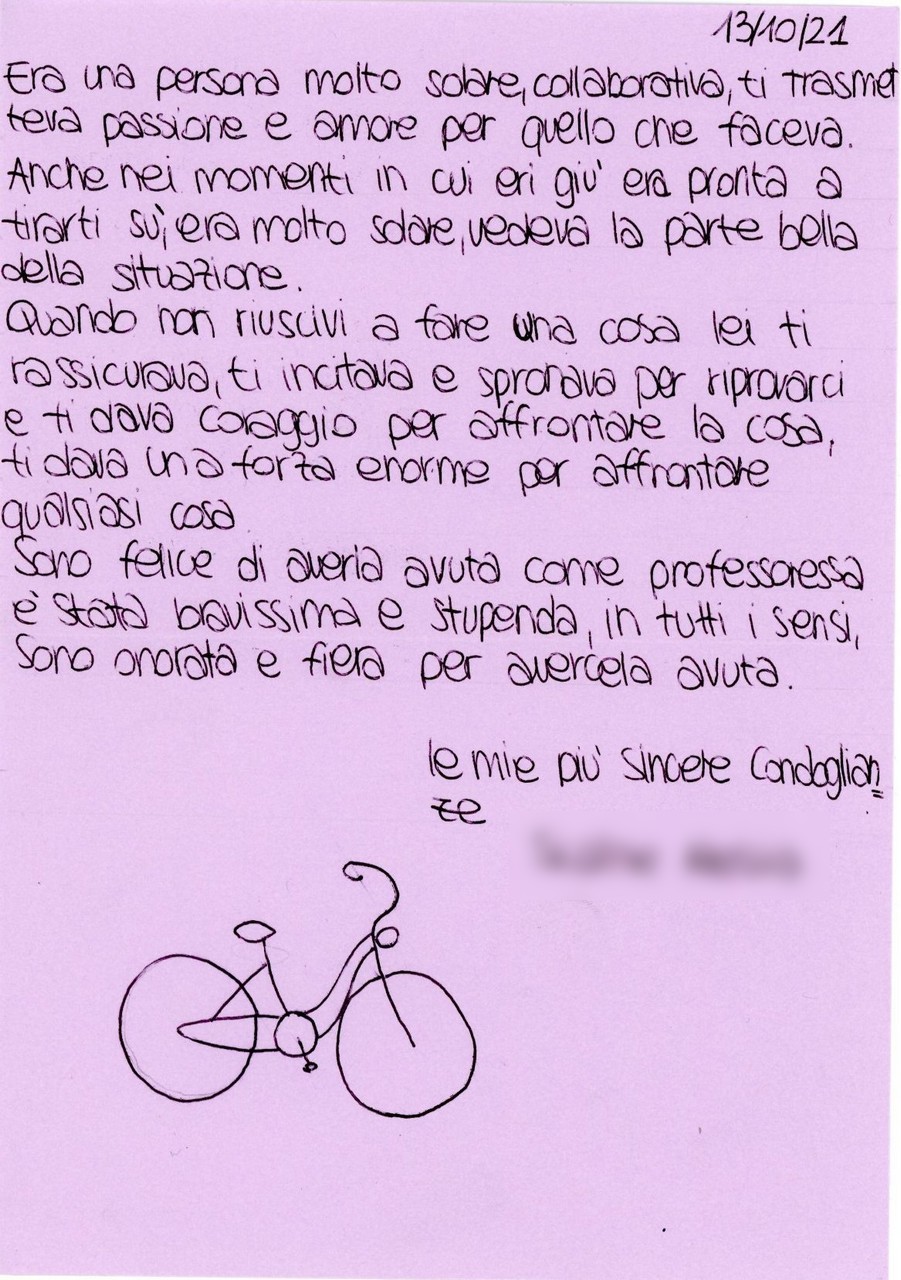 13/10/21
Era una persona molto solare, collaborativa, ti trasmet
teva passione e amore per quello che faceva.
Anche nei momenti in cui eri giu' era pronta a
tirarti su', era molto solare, vedeva la parte bella
della situazione.
Quando non riuscivi a fare una cosa lei ti
rassicurava, ti incitava e spronava per riprovarci
e ti dava coraggio per affrontare la cosa,
ti dava una forza enorme per affrontare
qualsiasi cosa
Sono felice di averla avuta come professoressa
e' stata bravissima e stupenda, in tutti i sensi,
Sono onorata e fiera per avercela avuta.
le mie piu' sincere Condoglian=
ze